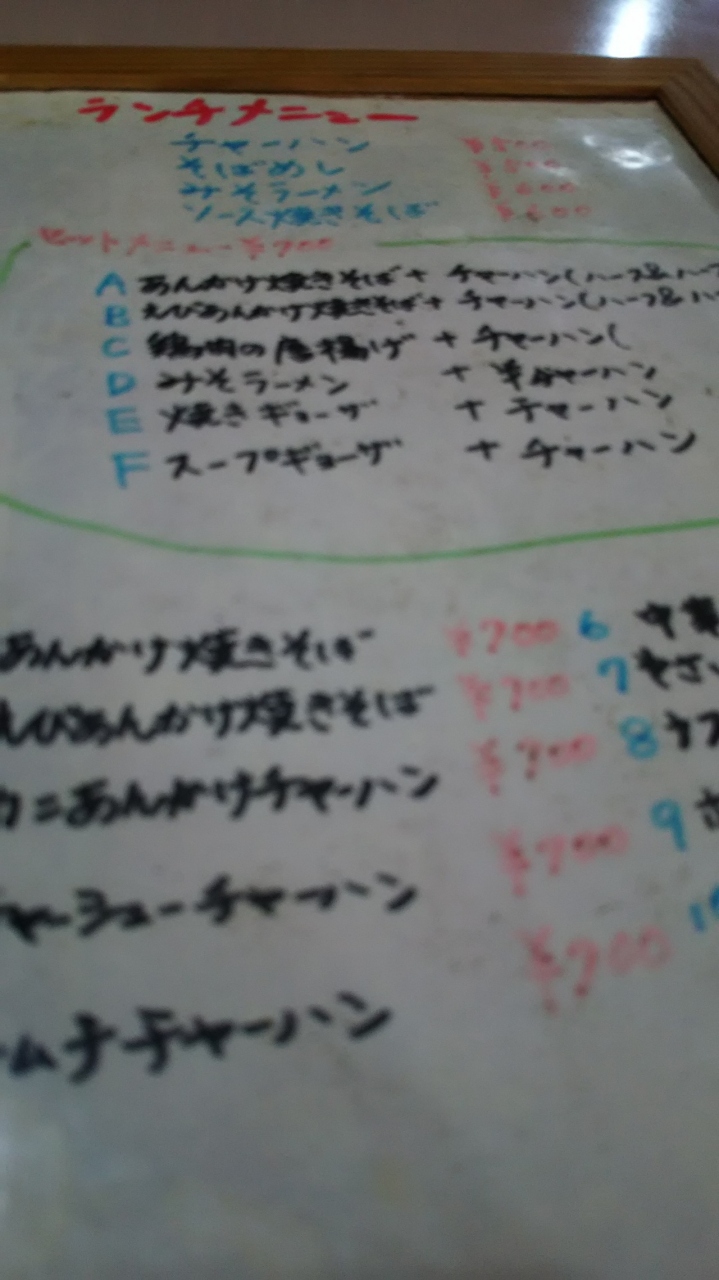 ランチメニュー
チャーハン ¥500
そばめし ¥500
みそラーメン ¥600
ソース焼きそば ¥600
セットメニュー ¥900
A あんかけ焼きそば + チャーハン(ハーフ&ハー
B えびあんかけ焼きそば + チャーハン(ハーフ&ハ
C 鶏肉の唐揚げ + チャーハン(
D みそラーメン + 半チャーハン
E 焼きギョーザ + チャーハン
F スープギョーザ + チャーハン
あんかけ焼きそば ¥700 6 中華
えびあんかけ焼きそば ¥700 7 やさい
カニあんかけチャーハン ¥700 8
チャーシューチャーハン ¥700 9
キムチチャーハン ¥700 10